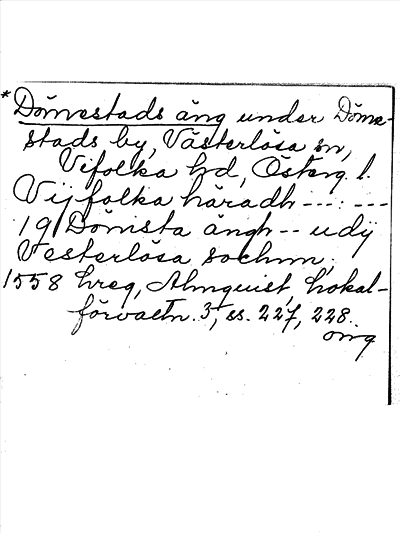 *Dömestads äng under Döme-
stads by, Västerlösa sn,
Vifolka hd, Österg. l.
Vijfolka häradh ---:---
19 Dömsta ängh -- udij
Vesterlösa sochnn;
1558 hreg, Almquist, Lokal-
förvaltn. 3, ss. 227, 228.
omg